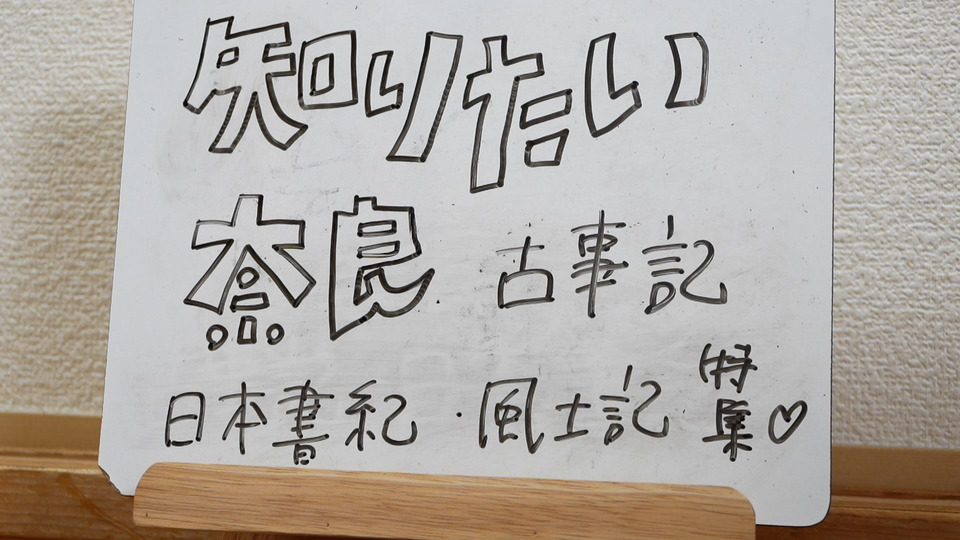 知りたい
奈良 古事記
日本書紀・風土記 特集♡